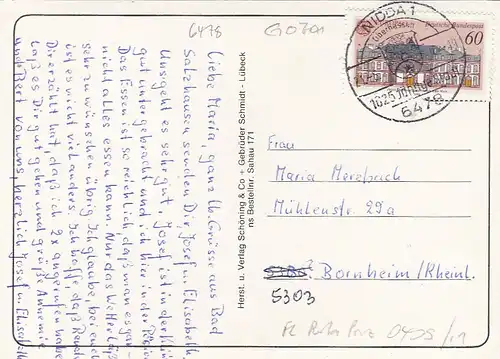 6478
GOZON
NIDDA 1
Deutsche Bundespost
60
1025 Jahre
6478
Liebe Maria, ganz lb. Grüsse aus Bad
Salzhausen senden Dir, Josef u. Elisabeth.
Uns geht es sehr gut, Josef ist in der Klinik
gut untergebracht und ich hier in der
Das Essen ist so reichlich, daß man es gar
nicht alles essen kann. Nur das Wetter läßt
sehr zu wünschen übrig. Ich glaube, bei euch
ist es nicht viel anders. Ich hoffe, daß
Dir erzählt hat, daß ich 2x angerufen habe
Laß es Dir gut gehen und grüße Annemie
und Bert von uns, herzlich Josef u. Elisabeth
Herst. u. Verlag Schöning & Co + Gebrüder Schmidt - Lübeck
ns Bestellnr. Sahau 171
Frau
Maria Merzbach
Mühlenstr. 29a
Bornheim/Rheinl.
5303